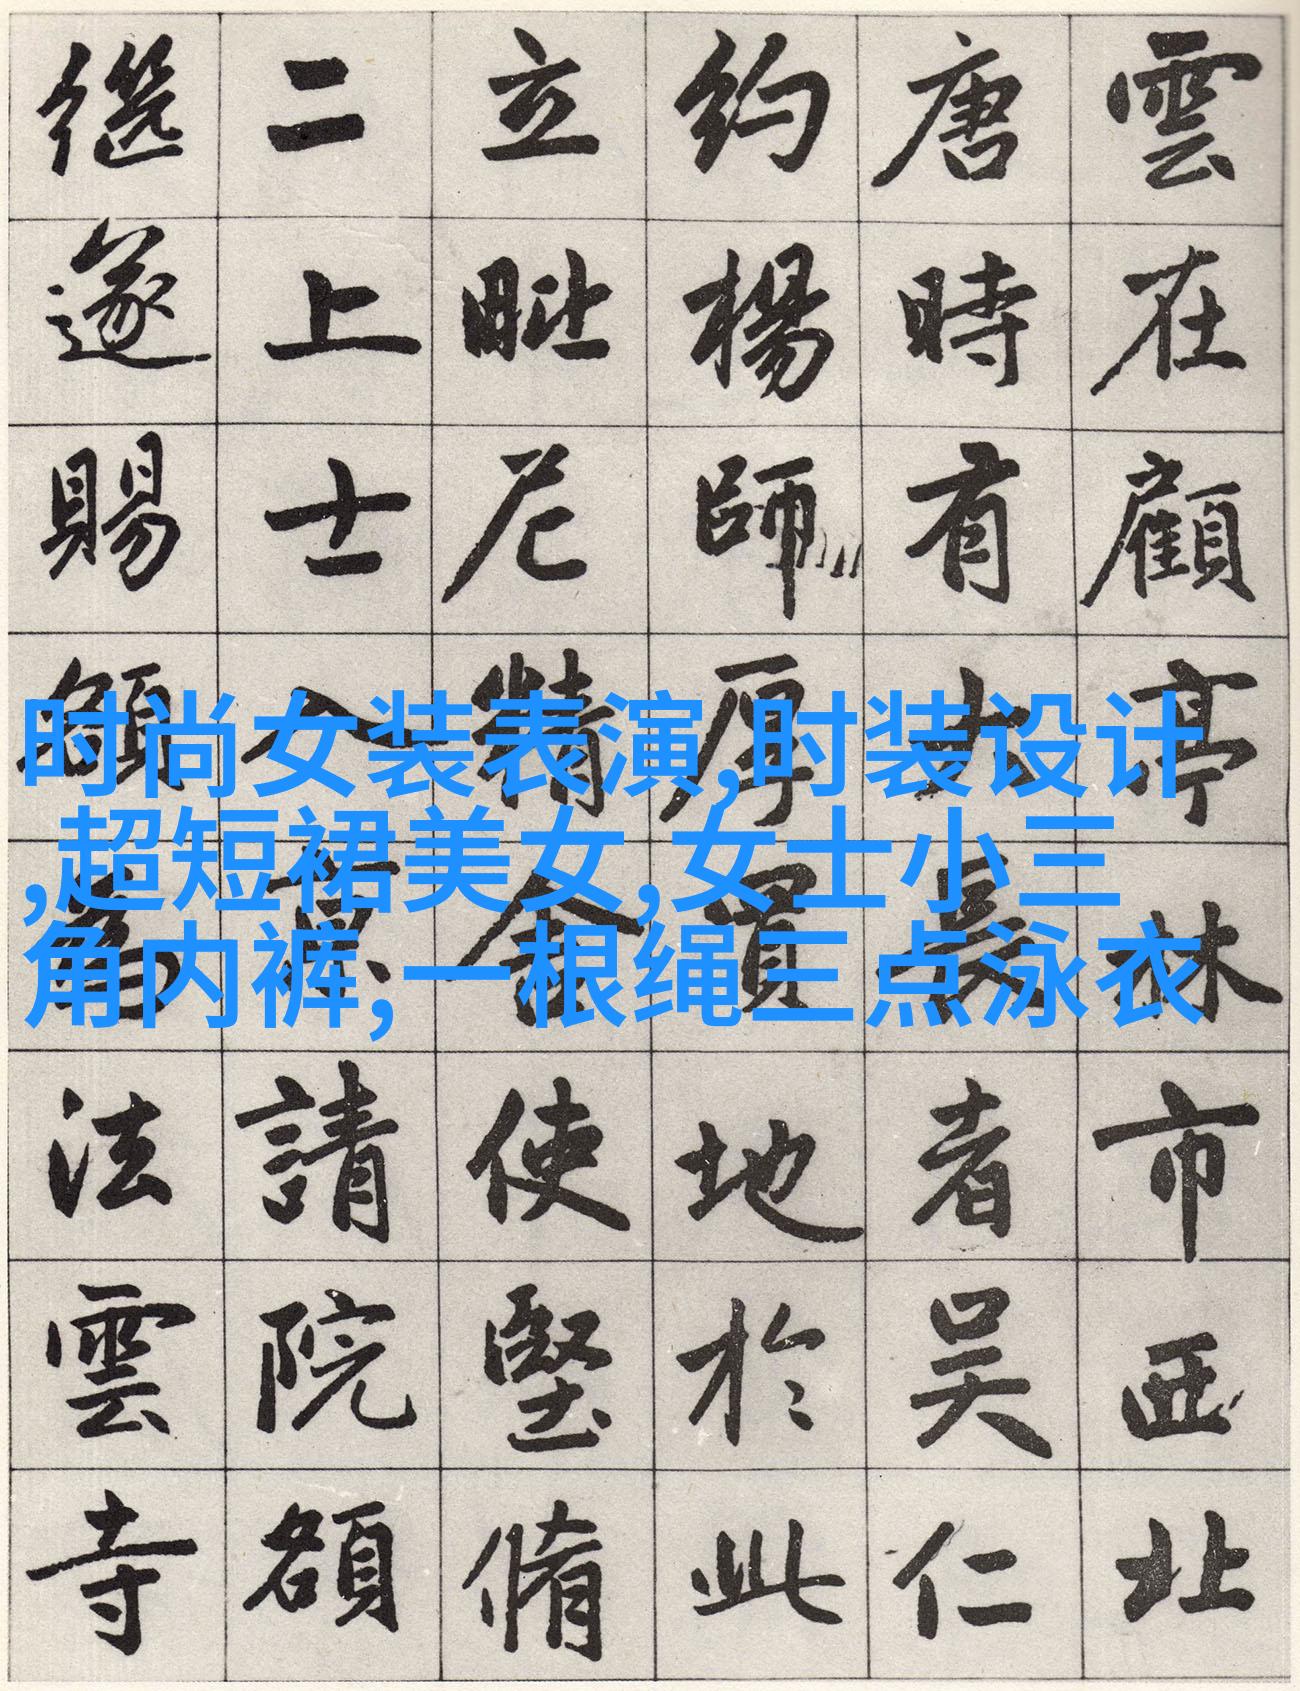 雲在顧亭林市西北
唐時有大長者吳仁
約楊師厚地於此
立毗尼精舍使堅脩
二上士入請院額
繼遂賜額為法雲寺
时尚女装表演,时装设计
,超短裙美女,女士小三
角内裤,一根绳三点泳衣